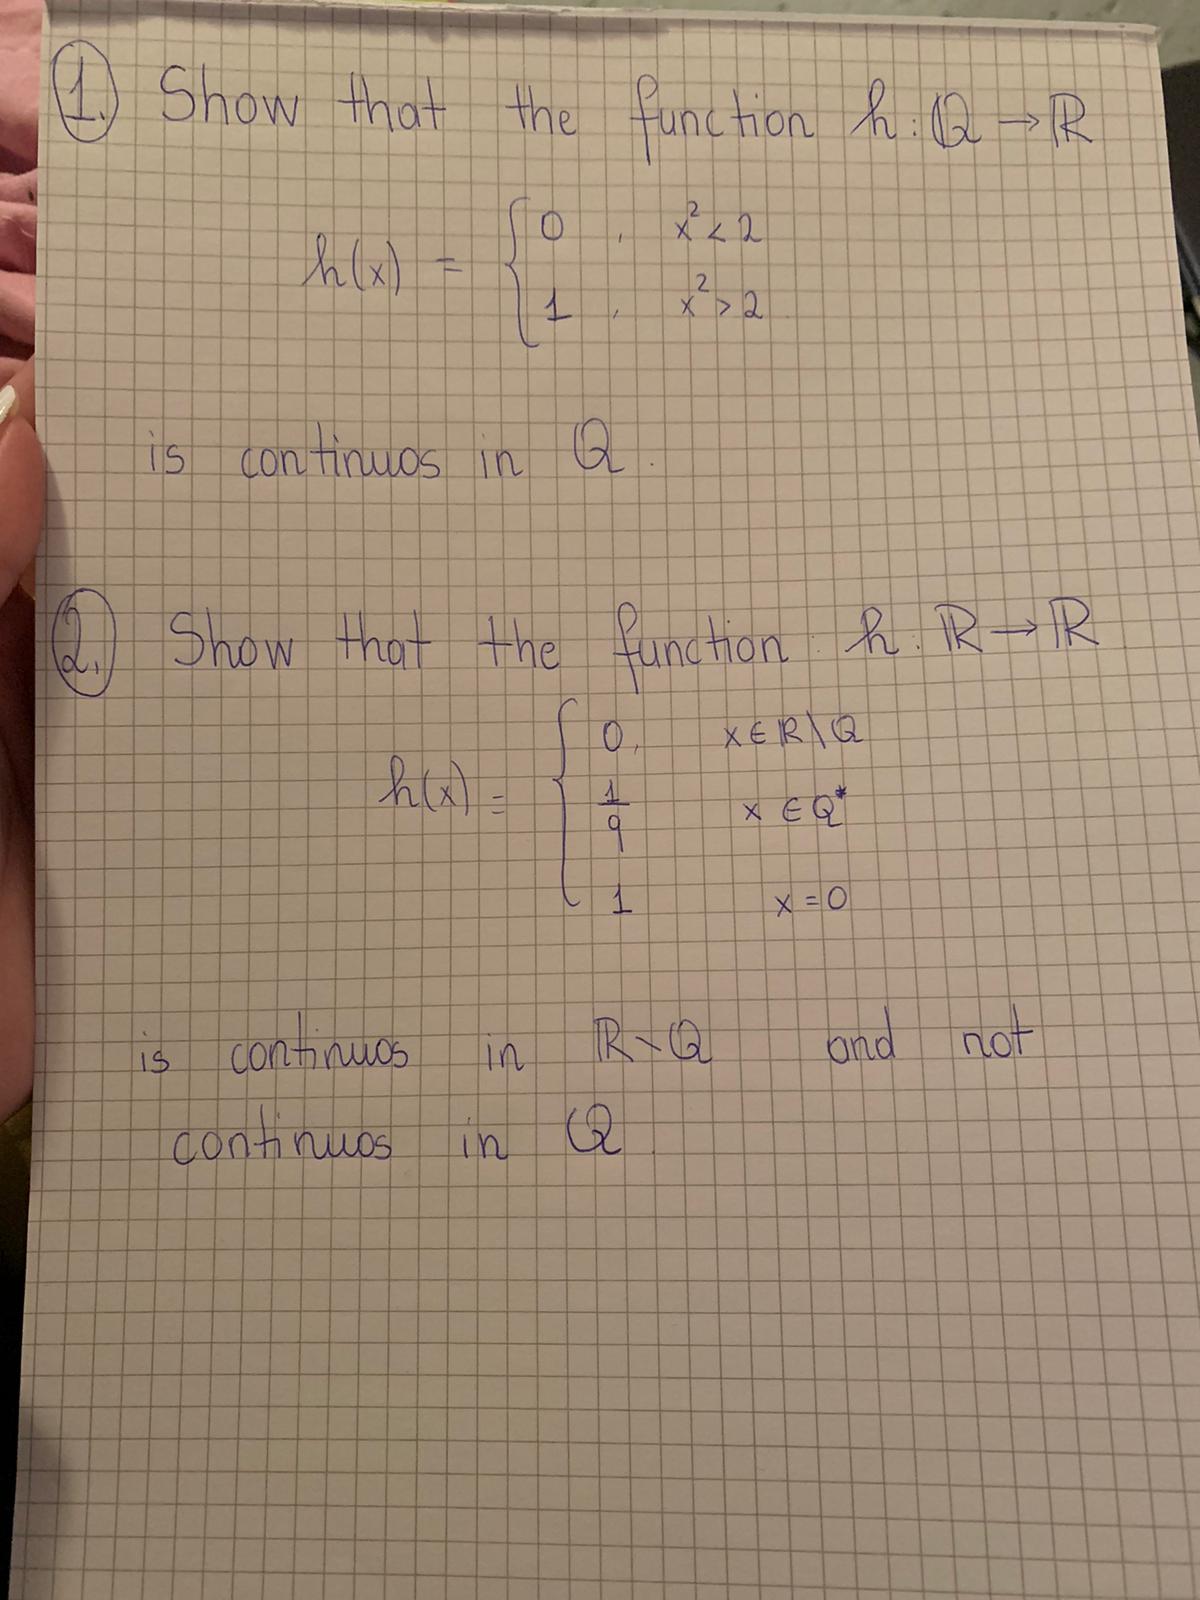 1. Show that the function h: ℚ → ℝ
h(x) = { 0 , x² < 2
1 , x² > 2
is continuos in ℚ.
2. Show that the function: h: ℝ → ℝ
h(x) = { 0, x ∈ ℝ \ ℚ
1/q x ∈ ℚ*
1 x = 0
is continuos in ℝ \ ℚ and not
continuos in ℚ